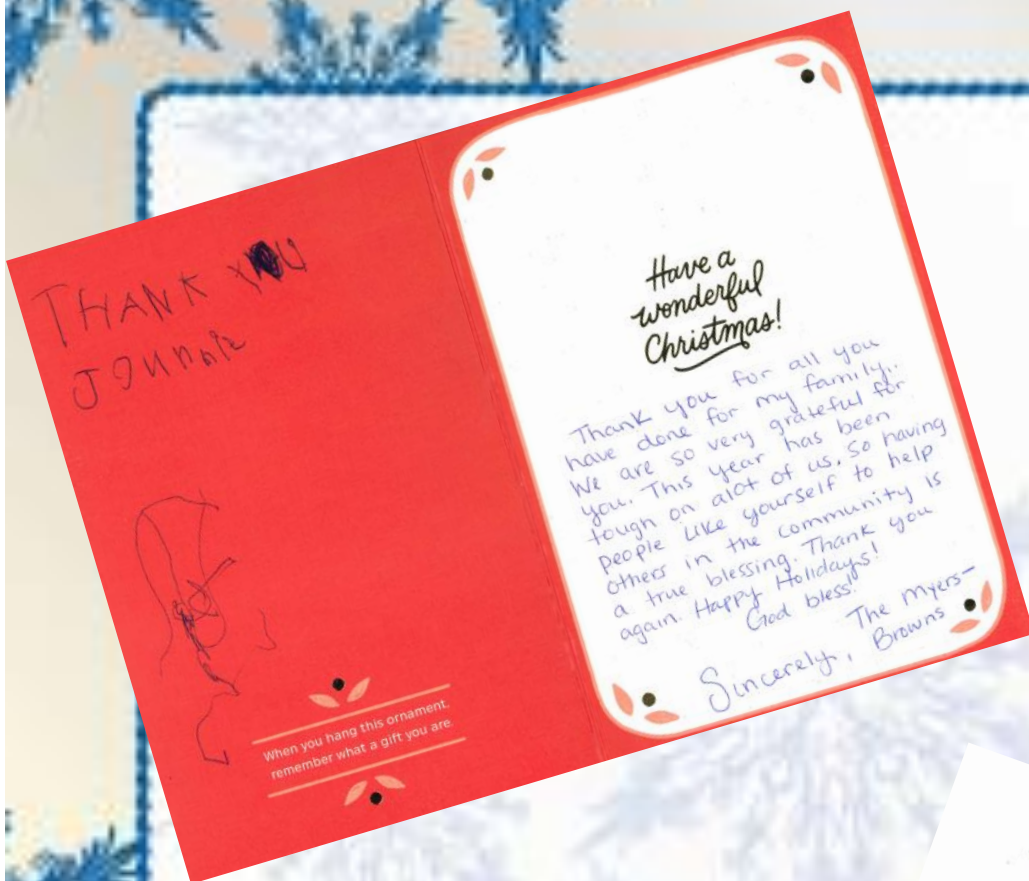 THANK YOU
When you hang this ornament,
remember what a gift you are.
Have a
wonderful
Christmas!
Thank you for all you
have done for my family.
We are so very grateful for
you. This year has been
tough on alot of us. So having
people like yourself to help
others in the community is
a true blessing. Thank you
again. Happy Holidays!
God bless!
Sincerely, The Myers-
Browns